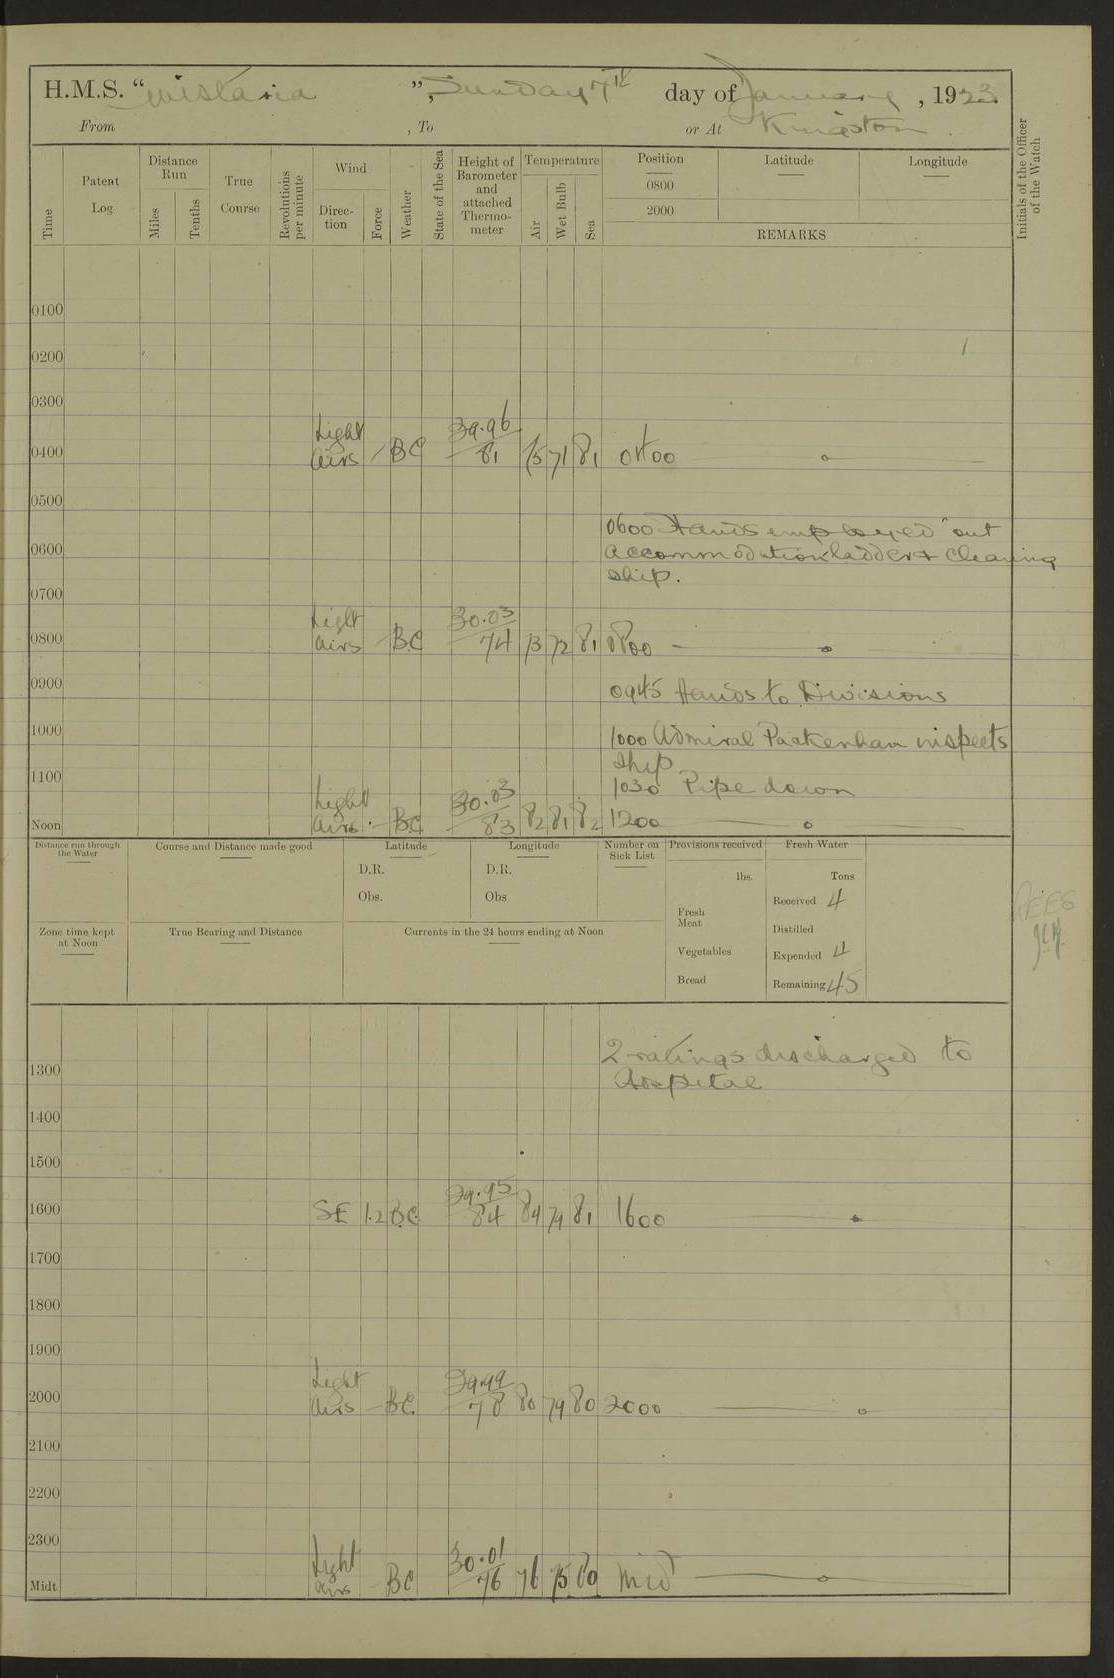 H.M.S. "Wistaria", Sunday 7th day of January, 1923
From , To or At Kingston.
Time
Patent Log
Distance Run
Miles
Tenths
True Course
Revolutions per minute
Wind
Direction
Force
Weather
State of the Sea
Height of Barometer and attached Thermometer
Temperature
Air
Wet Bulb
Sea
Position Latitude Longitude
0800
2000
REMARKS
Initials of the Officer of the Watch
0100
0200
0300
0400 Light Airs - BC 29.96 81 75 71 81 0400
0500
0600 0600 Hands employed out
accommodation ladder & cleaning
ship.
0700
0800 Light airs - BC 30.03 74 73 72 81 0800
0900 0945 Hands to Divisions
1000 1000 Admiral Packenham inspects
ship
1100 1030 Pipe down
Noon Light airs - BC 30.03 83 82 81 82 1200
Distance run through the Water
Course and Distance made good
Latitude
D.R.
Obs.
Longitude
D.R.
Obs
Number on Sick List
Provisions received
lbs.
Fresh Meat
Vegetables
Bread
Fresh Water
Tons
Received 4
Distilled
Expended 4
Remaining 45
Zone time kept at Noon
True Bearing and Distance
Currents in the 24 hours ending at Noon
2 ratings discharged to
1300 Hospital
1400
1500
1600 SE 1.2 BC 29.95 84 84 79 81 1600
1700
1800
1900
2000 Light airs - BC 29.99 78 80 79 80 2000
2100
2200
2300
Midt Light airs - BC 30.01 76 76 75 80 Mid